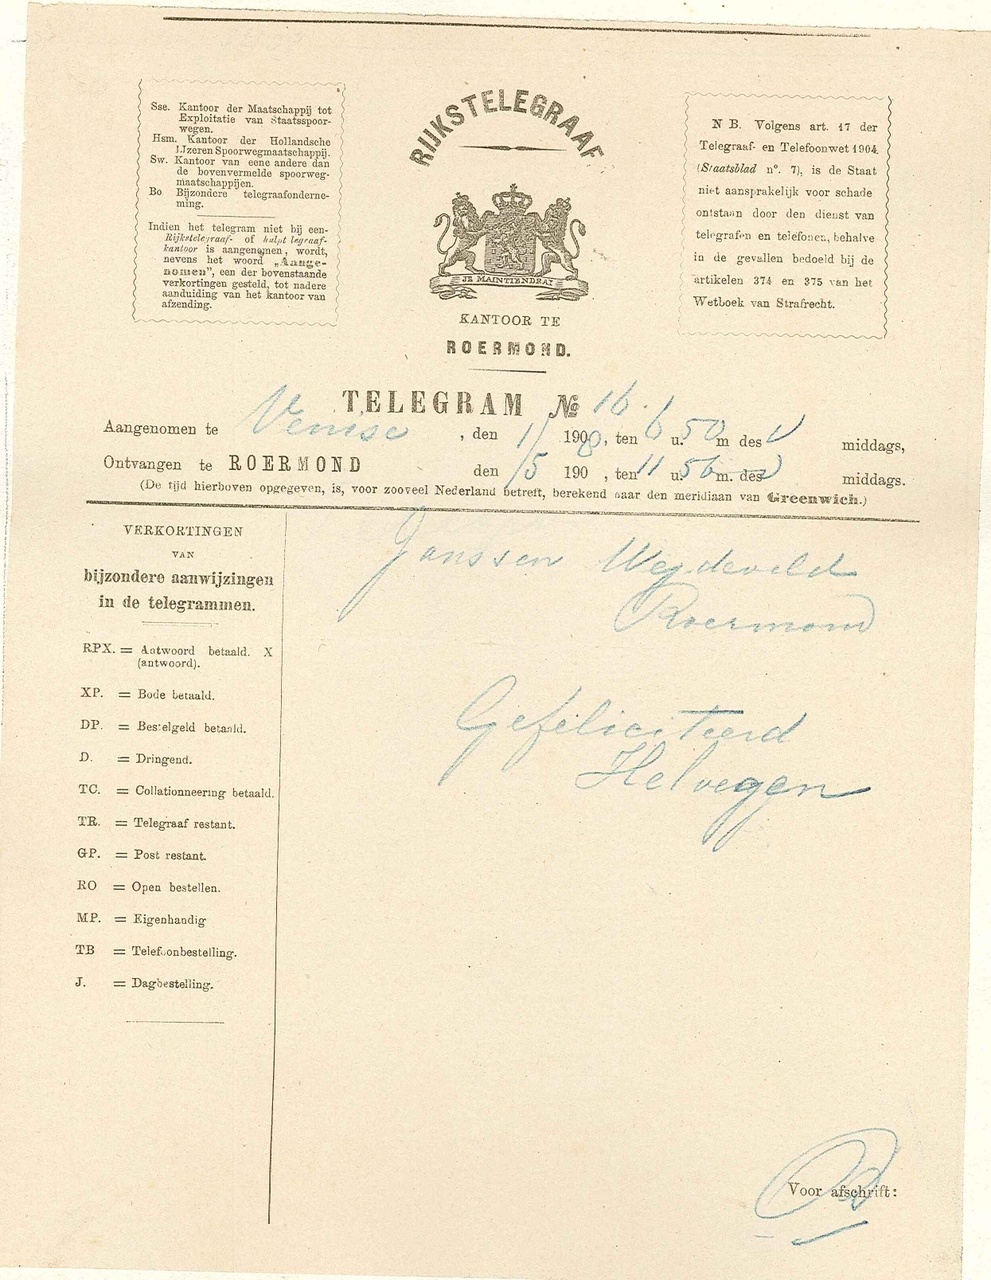 Sse. Kantoor der Maatschappij tot
Exploitatie van Staatsspoor-
wegen.
Hsm. Kantoor der Hollandsche
IJzeren Spoorwegmaatschappij.
Sw. Kantoor van eene andere dan
de bovenvermelde spoorweg-
maatschappijen.
Bo. Bijzondere telegraafonderne-
ming.
Indien het telegram niet bij een
Rijkstelegraaf- of hulptelegraaf-
kantoor is aangenomen, wordt,
nevens het woord „Aange-
nomen”, een der bovenstaande
verkortingen gesteld, tot nadere
aanduiding van het kantoor van
afzending.
RIJKSTELEGRAAF
JE MAINTIENDRAI
KANTOOR TE
ROERMOND.
N B. Volgens art. 17 der
Telegraaf- en Telefoonwet 1904.
(Staatsblad n°. 7), is de Staat
niet aansprakelijk voor schade
ontstaan door den dienst van
telegrafen en telefonen, behalve
in de gevallen bedoeld bij de
artikelen 374 en 375 van het
Wetboek van Strafrecht.
TELEGRAM № 16.
Aangenomen te Venise, den 1/5 1908, ten 6 u. 50 m des v middags,
Ontvangen te ROERMOND den 1/5 190 , ten 11 u. 56 m. des middags.
(De tijd hierboven opgegeven, is, voor zooveel Nederland betreft, berekend naar den meridiaan van Greenwich.)
VERKORTINGEN
VAN
bijzondere aanwijzingen
in de telegrammen.
RPX. = Antwoord betaald. X
(antwoord).
XP. = Bode betaald.
DP. = Bestelgeld betaald.
D. = Dringend.
TC. = Collationneering betaald.
TR. = Telegraaf restant.
GP. = Post restant.
RO = Open bestellen.
MP. = Eigenhandig
TB = Telefoonbestelling.
J. = Dagbestelling.
Janssen Weydeveld
Roermond
Gefeliciteerd
Helvegen
Voor afschrift: